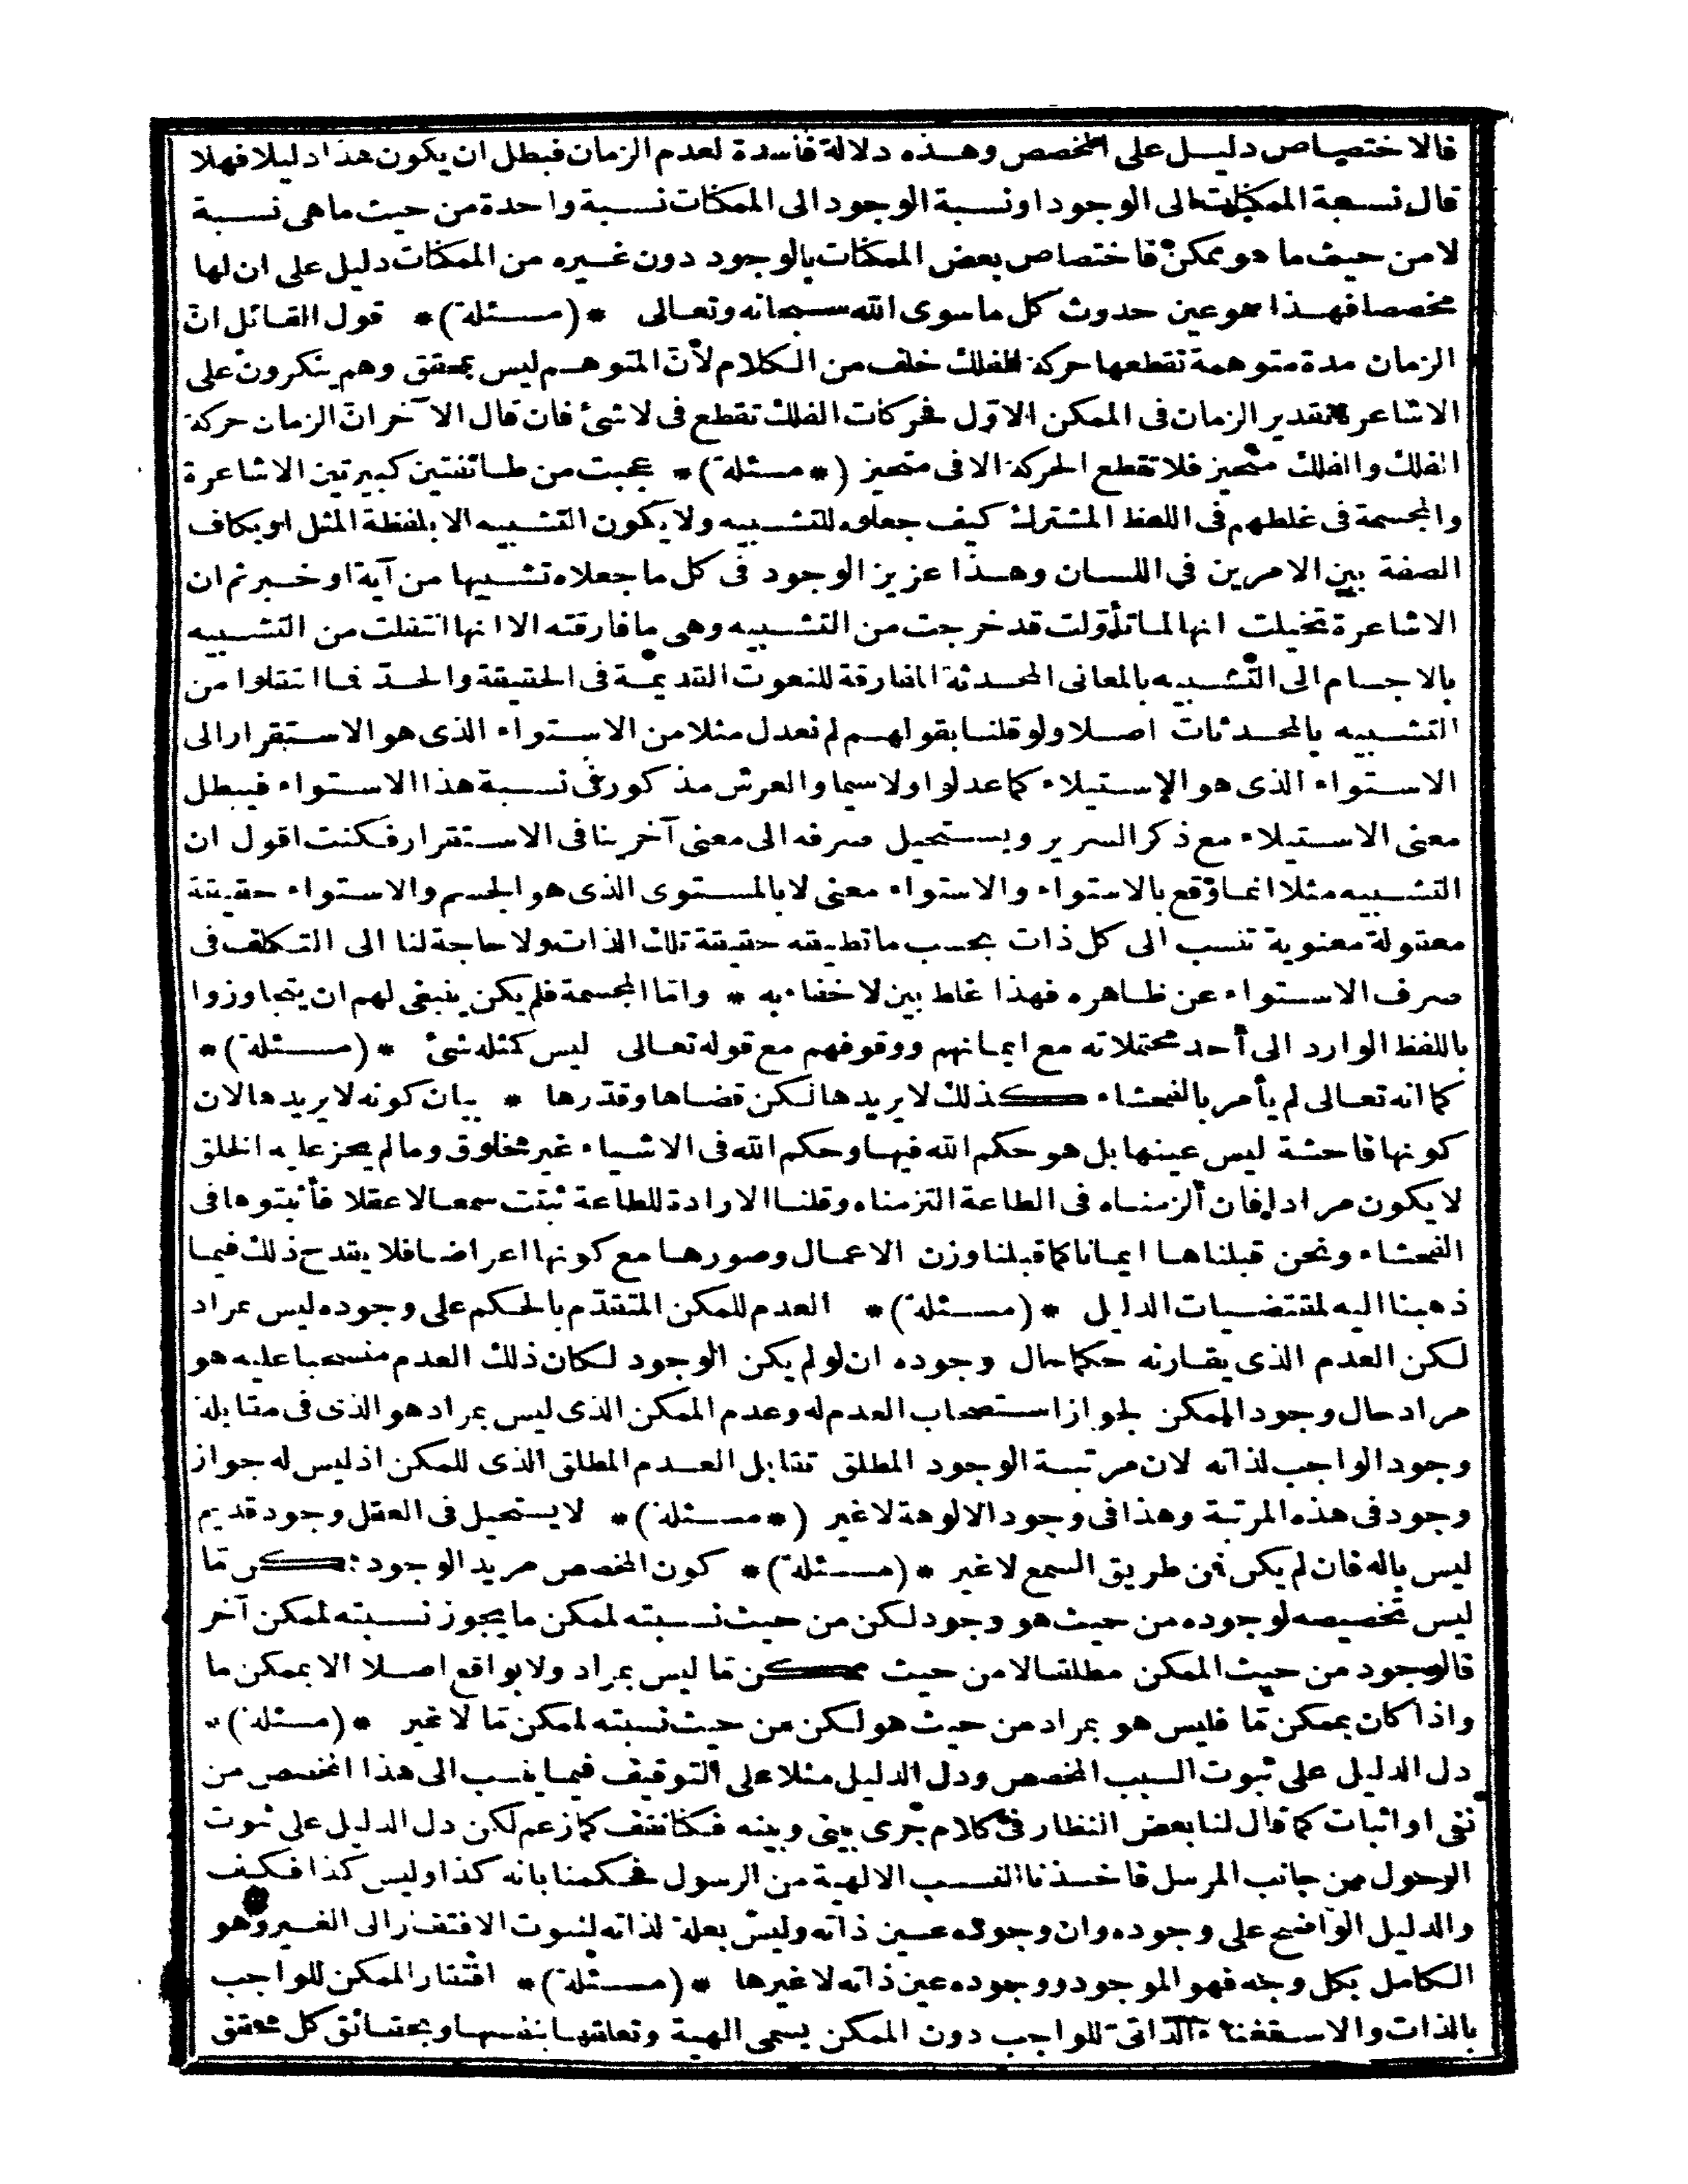 فالاختصاص دليل على المخصص وهذه دلالة فاسدة لعدم الزمان فبطل ان يكون هذا دليلا فهلا
قال نسبة الممكنات الى الوجود او نسبة الوجود الى الممكنات نسبة واحدة من حيث ما هى نسبة
لا من حيث ما هو ممكن فاختصاص بعض الممكنات بالوجود دون غيره من الممكنات دليل على ان لها
مخصصا فهذا هو عين حدوث كل ما سوى الله سبحانه وتعالى * (مسئلة) * قول القائل انّ
الزمان مدة متوهمة تقطعها حركة الفلك خلف من الكلام لأنّ المتوهم ليس بمحقق وهم ينكرون على
الاشاعرة تقدير الزمان فى الممكن الاوّل فحركات الفلك تقطع فى لا شئ فان قال الآخر انّ الزمان حركة
الفلك والفلك متحيز فلا تقطع الحركة الا فى متحيز (* مسئلة) * عجبت من طائفتين كبيرتين الاشاعرة
والمجسمة فى غلطهم فى اللفظ المشترك كيف جعلوه للتشبيه ولا يكون التشبيه الا بلفظة المثل او بكاف
الصفة بين الامرين فى اللسان وهذا عزيز الوجود فى كل ما جعلاه تشبيها من آية او خبر ثم ان
الاشاعرة تخيلت انها لما تأوّلت قد خرجت من التشبيه وهى ما فارقته الا انها انتقلت من التشبيه
بالاجسام الى التشبيه بالمعانى المحدثة المفارقة للنعوت القديمة فى الحقيقة والحدّ فما انتقلوا من
التشبيه بالمحدثات اصلا ولو قلنا بقولهم لم نعدل مثلا من الاستواء الذى هو الاستقرار الى
الاستواء الذى هو الاستيلاء كما عدلوا ولا سيما والعرش مذكور فى نسبة هذا الاستواء فيبطل
معنى الاستيلاء مع ذكر السرير ويستحيل صرفه الى معنى آخر ينافى الاستقرار فكنت اقول ان
التشبيه مثلا انما وقع بالاستواء والاستواء معنى لا بالمستوى الذى هو الجسم والاستواء حقيقة
معقولة معنوية تنسب الى كل ذات بحسب ما تطيقه حقيقة تلك الذات ولا حاجة لنا الى التكلف فى
صرف الاستواء عن ظاهره فهذا غلط بين لا خفاء به * وامّا المجسمة فلم يكن ينبغى لهم ان يتجاوزوا
باللفظ الوارد الى أحد محتملاته مع ايمانهم ووقوفهم مع قوله تعالى ليس كمثله شئ * (مسئلة) *
كما انه تعالى لم يأمر بالفحشاء كذلك لا يريدها لكن قضاها وقدّرها * بيان كونه لا يريدها لان
كونها فاحشة ليس عينها بل هو حكم الله فيها وحكم الله فى الاشياء غير مخلوق وما لم يجز عليه الخلق
لا يكون مرادا فان ألزمناه فى الطاعة التزمناه وقلنا الارادة للطاعة ثبتت سمعا لا عقلا فأثبتوها فى
الفحشاء ونحن قبلناها ايمانا كما قبلنا وزن الاعمال وصورها مع كونها اعراضا فلا يقدح ذلك فيما
ذهبنا اليه لمقتضيات الدليل * (مسئلة) * العدم للممكن المتقدّم بالحكم على وجوده ليس بمراد
لكن العدم الذى يقارنه حكما حال وجوده ان لو لم يكن الوجود لكان ذلك العدم منسحبا عليه هو
مراد حال وجود الممكن لجواز استصحاب العدم له وعدم الممكن الذى ليس بمراد هو الذى فى مقابلة
وجود الواجب لذاته لان مرتبة الوجود المطلق تقابل العدم المطلق الذى للممكن اذ ليس له جواز
وجود فى هذه المرتبة وهذا فى وجود الالوهة لا غير (* مسئلة) * لا يستحيل فى العقل وجود قديم
ليس باله فان لم يكن فمن طريق السمع لا غير * (مسئلة) * كون المخصص مريد الوجود ممكن مّا
ليس تخصيصه لوجوده من حيث هو وجود لكن من حيث نسبته لممكن ما يجوز نسبته لممكن آخر
فالوجود من حيث الممكن مطلقا لا من حيث ممكن مّا ليس بمراد ولا بواقع اصلا الا بممكن ما
واذا كان بممكن مّا فليس هو بمراد من حيث هو لكن من حيث نسبته لممكن مّا لا غير * (مسئلة) *
دل الدليل على ثبوت السبب المخصص ودل الدليل مثلا على التوقيف فيما ينسب الى هذا المخصص من
نفى او اثبات كما قال لنا بعض النظار فى كلام جرى بينى وبينه فكنا نقف كما زعم لكن دل الدليل على ثبوت
الرسول من جانب المرسل فاخذنا النسب الالهية من الرسول فحكمنا بانه كذا وليس كذا فكيف
والدليل الواضح على وجوده وان وجوده عين ذاته وليس بعلة لذاته لثبوت الافتقار الى الغير وهو
الكامل بكل وجه فهو الموجود ووجوده عين ذاته لا غيرها * (مسئلة) * افتقار الممكن للواجب
بالذات والاستغناء الذاتى للواجب دون الممكن يسمى الهية وتعلقها بنفسها وبحقائق كل محقق